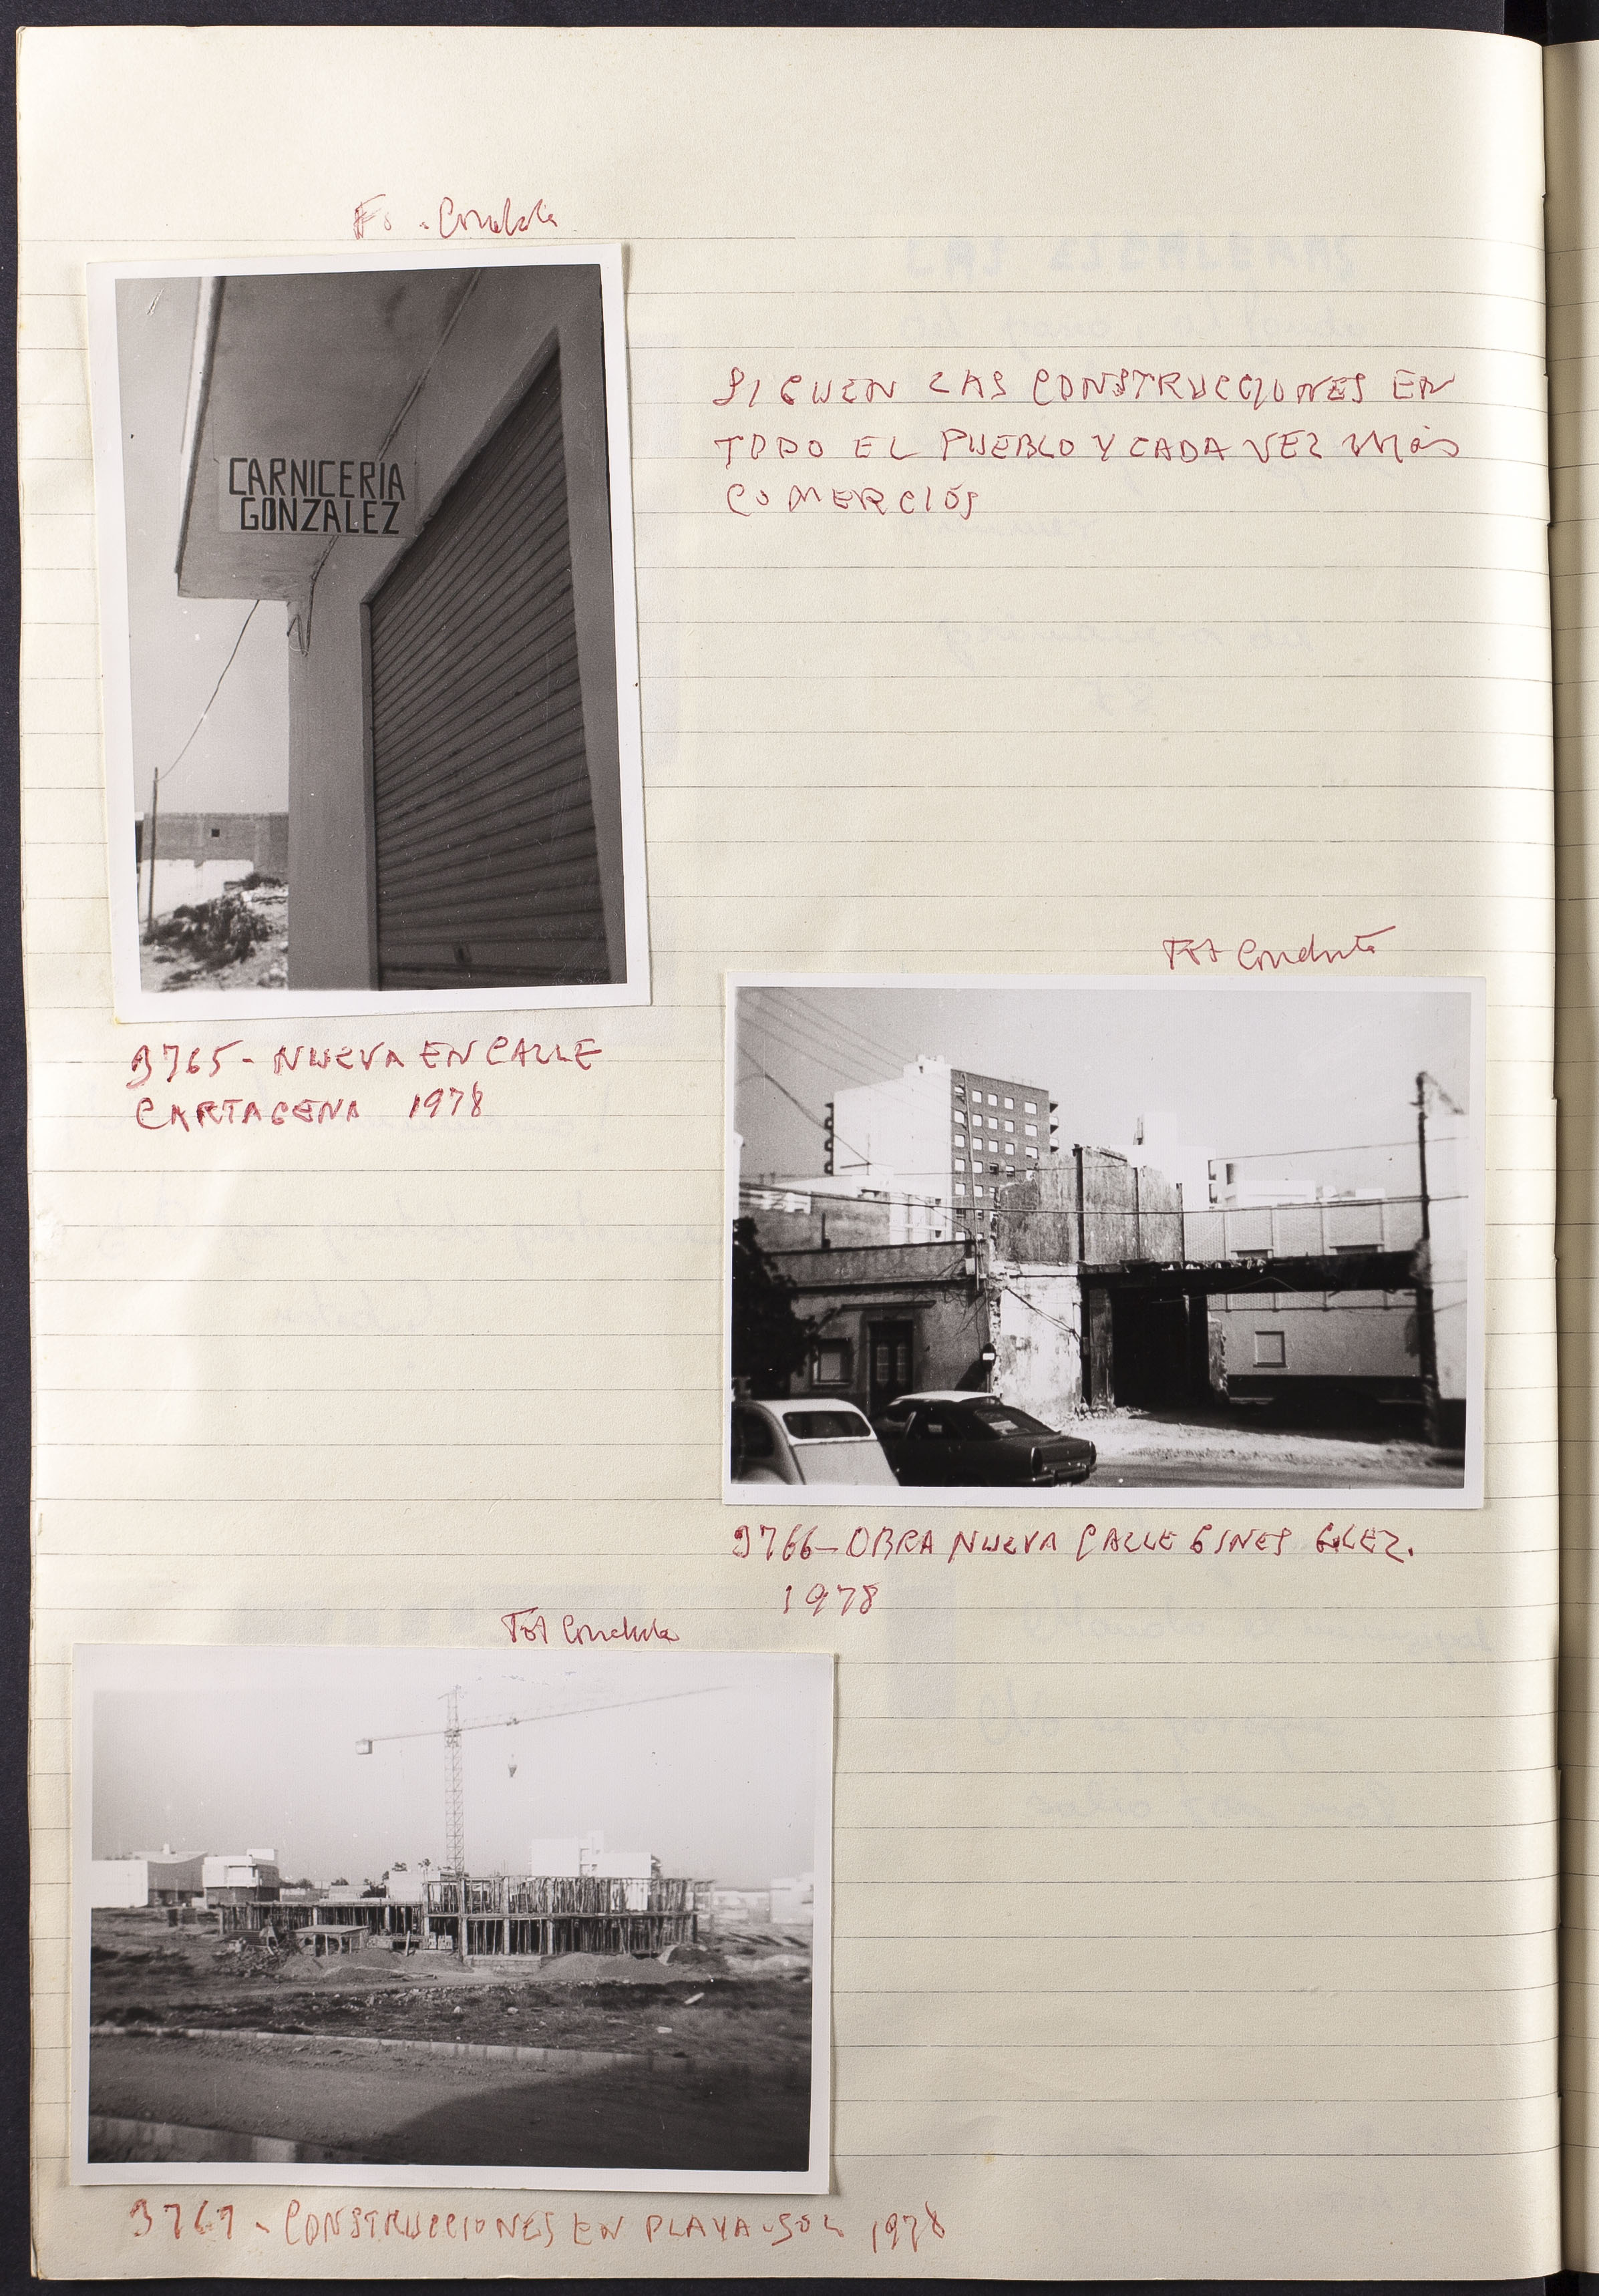 CARNICERIA
GONZALEZ
SIGUEN LAS CONSTRUCCIONES EN
TODO EL PUEBLO Y CADA VEZ MAS
COMERCIOS
3765- NUEVA EN CALLE
CARTAGENA 1978
3766- OBRA NUEVA CALLE GINES GLEZ.
1978
3767- CONSTRUCCIONES EN PLAYA-SOL 1978